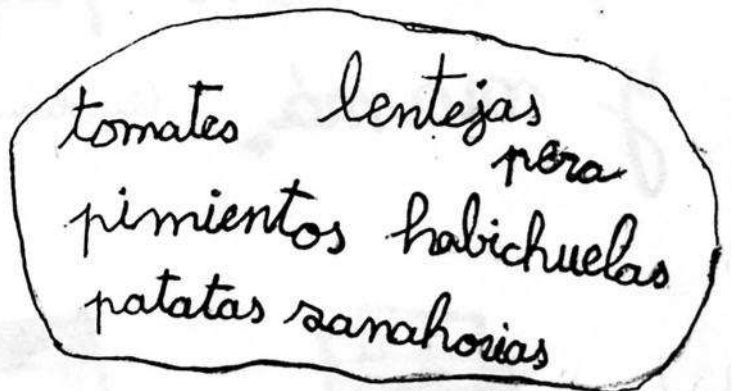 tomates lentejas
pera
pimientos habichuelas
patatas zanahorias